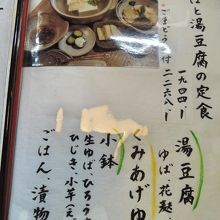 ばと湯豆腐の定食
一九〇四、
ごまどうふ付
二二六八、
湯豆腐
ゆば花巻
くみあげゆ
小鉢
生ゆば、ひろう
ひじき、小芋
ごはん、漬物